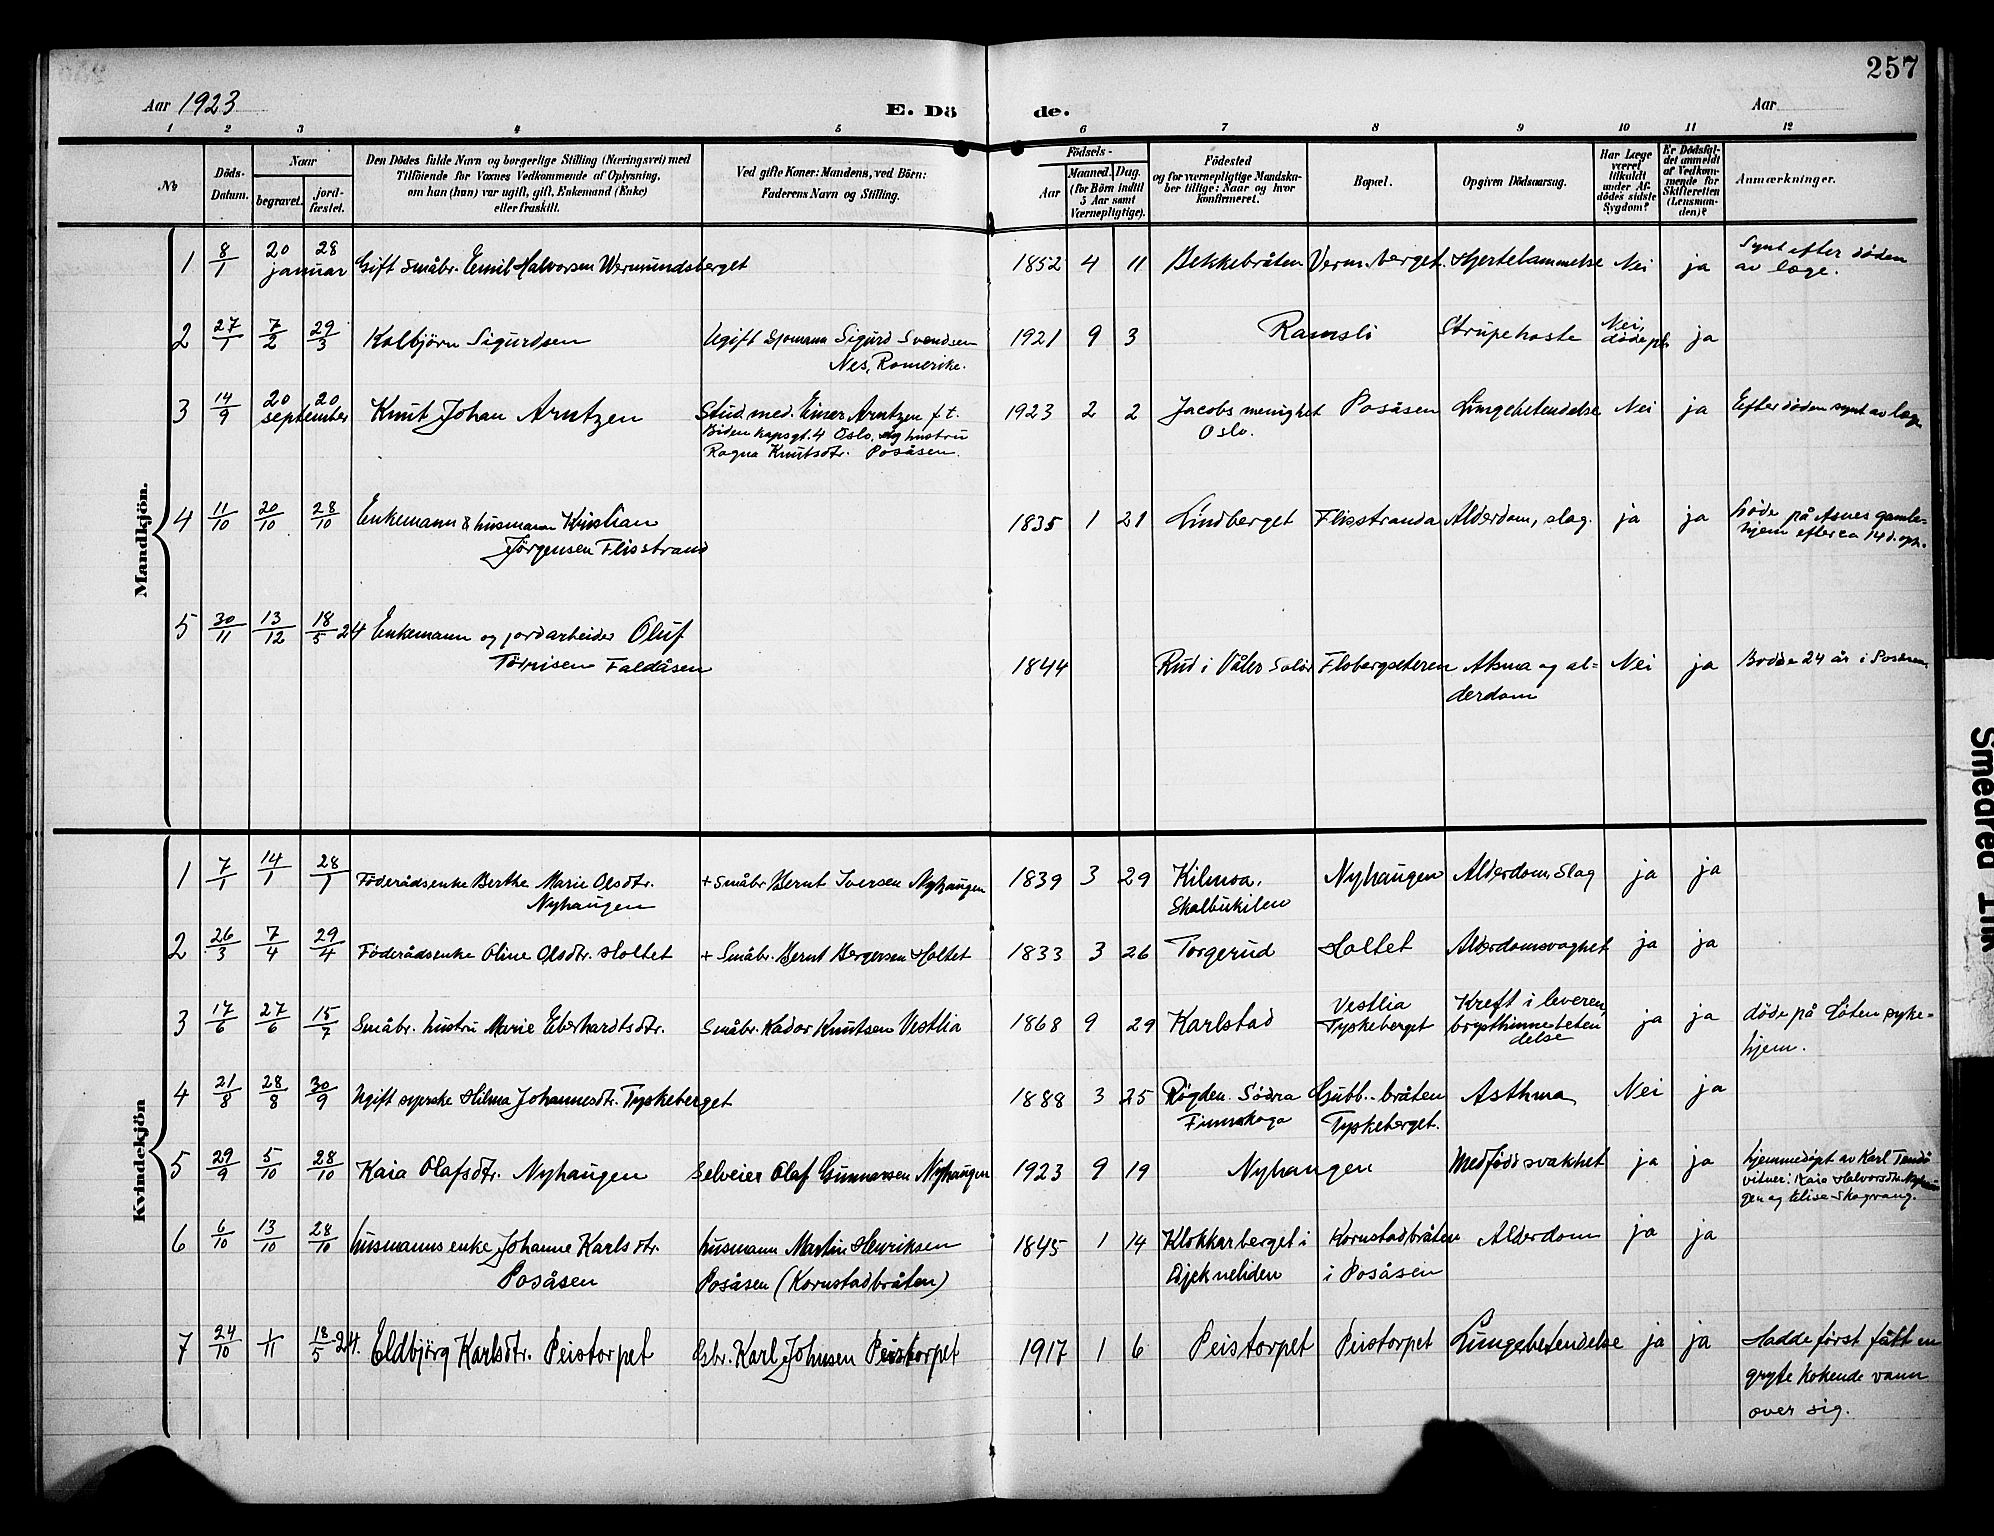 257
Aar 1923
E. Dö de.
Aar
1 2 3 4 5 6 7 8 9 10 11 12
No
Döds-Datum.
Naar
begravet.
jord-fæstet.
Den Dödes fulde Navn og borgerlige Stilling (Næringsvei) med
Tilföiende for Voxnes Vedkommende af Oplysning,
om han (hun) var ugift, gift, Enkemand (Enke)
eller fraskilt.
Ved gifte Koner: Mandens, ved Börn:
Faderens Navn og Stilling.
Födsels-
Aar
Maaned. Dag.
(for Börn indtil
5 Aar samt
Værnepligtige).
Födested
og for værnepligtige Mandska-
ber tillige: Naar og hvor
konfirmeret.
Bopæl.
Opgiven Dödsaarsag.
Har Læge
været
tilkaldt
under Af-
dödes sidste
Sygdom?
Er Dödsfal-
det anmeldt
af Vedkom-
mende for
Skifteretten
(Lensman-
den)?
Anmærkninger.
Mandkjön.
1 8/1 20 28 januar Gift småbr. Emil Halvorsen Wermundsberget 1852 4 11 Bekkebråten Verm.berget Hjertelammelse Nei ja Synt efter döden
av læge.
2 27/1 7/2 29/3 Kolbjörn Sigurdsen Ugift Sjömann Sigurd Svendsen 1921 9 3 Ramsli Strupehoste Nei, ja
Nes, Romerike.
3 14/9 20 20 september Knut Johan Arntzen Stud med. Einar Arntzen f.t. 1923 2 2 Jacobs menighet Posåsen Lungebetendelse Nei ja Efter döden synt av læge
Oslo.
4 Oslo, og hustru
Ragna Knutsdtr. Posåsen.
4 11/10 20/10 28/10 Enkemann & husmann Kristian 1835 1 21 Lindberget Flisstranda Alderdom, slag. ja ja Döde på Åsnes gamle-
Jörgensen Flisstrand hjem efter ca 14 d. oph.
5 30/11 13/12 18/5 24 Enkemann og jordarbeider Oluf
Törrisen Faldåsen 1844 Rud i Våler Solör Flobergseteren Atsma og al- Nei ja Bodde 24 år i Posåsen
derdom
Kvindekjön
1 7/1 14/1 28/1 Föderådsenke Berthe Marie Olsdtr. + Småbr. Bernt Iversen Nyhaugen 1839 3 29 Kilmoa, Nyhaugen Alderdom, Slag ja ja
Nyhaugen Skalbukilen
2 26/3 7/4 29/4 Föderådsenke Oline Olsdtr. Holtet + Småbr. Bernt Bergersen Holtet 1833 3 26 Torgerud Holtet Alderdomsvaghet ja ja
3 17/6 27/6 15/7 Småbr. hustru Marie Eberhardtsdtr. Småbr. Kador Knutsen Vestlia 1868 9 29 Karlstad Vestlia Kreft i leveren, ja ja döde på Löten syke-
Tyskeberget brysthinnebeten hjem.
delse
4 21/8 28/8 30/9 Ugift syerske Hilma Johannesdtr. Tyskeberget 1888 3 25 Rögden Södra Gubb..bråten Asthma Nei ja
Finnskoga Tyskeberget.
5 29/9 5/10 28/10 Kaia Olafsdtr. Nyhaugen Selveier Olaf Gunnarsen Nyhaugen 1923 9 19 Nyhaugen Medfödd svakhet ja ja hjemmedöpt av Karl
vitner: Kaia Halvorsdtr. Nyhau
gen og Elise Skogvang.
6 6/10 13/10 28/10 husmanns enke Johanne Karlsdtr. husmann Martin Henriksen 1845 1 14 Klokkarberget i Kornstadbråten Alderdom ja ja
Posåsen Posåsen (Kornstadbråten) Djekneliden i Posåsen
7 24/10 1/11 18/5 24. Eldbjörg Karlsdtr. Peistorpet Gbr. Karl Johnsen Peistorpet 1917 1 6 Peistorpet Peistorpet Lungebetendelse ja ja Hadde först fått en
gryte kokende vann
over sig.
Smeared Ink